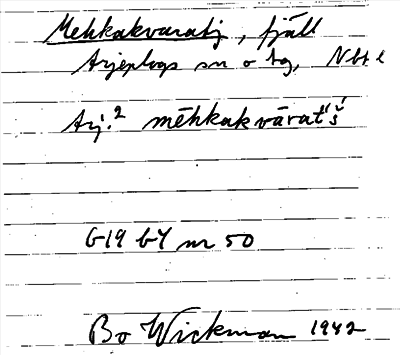 Mehkakvaratj, fjäll
Arjeplogs sn o tg, Nbt l
Arj.² mēhkakvārat́š́
G19 b4 nr 50
Bo Wickman 1942